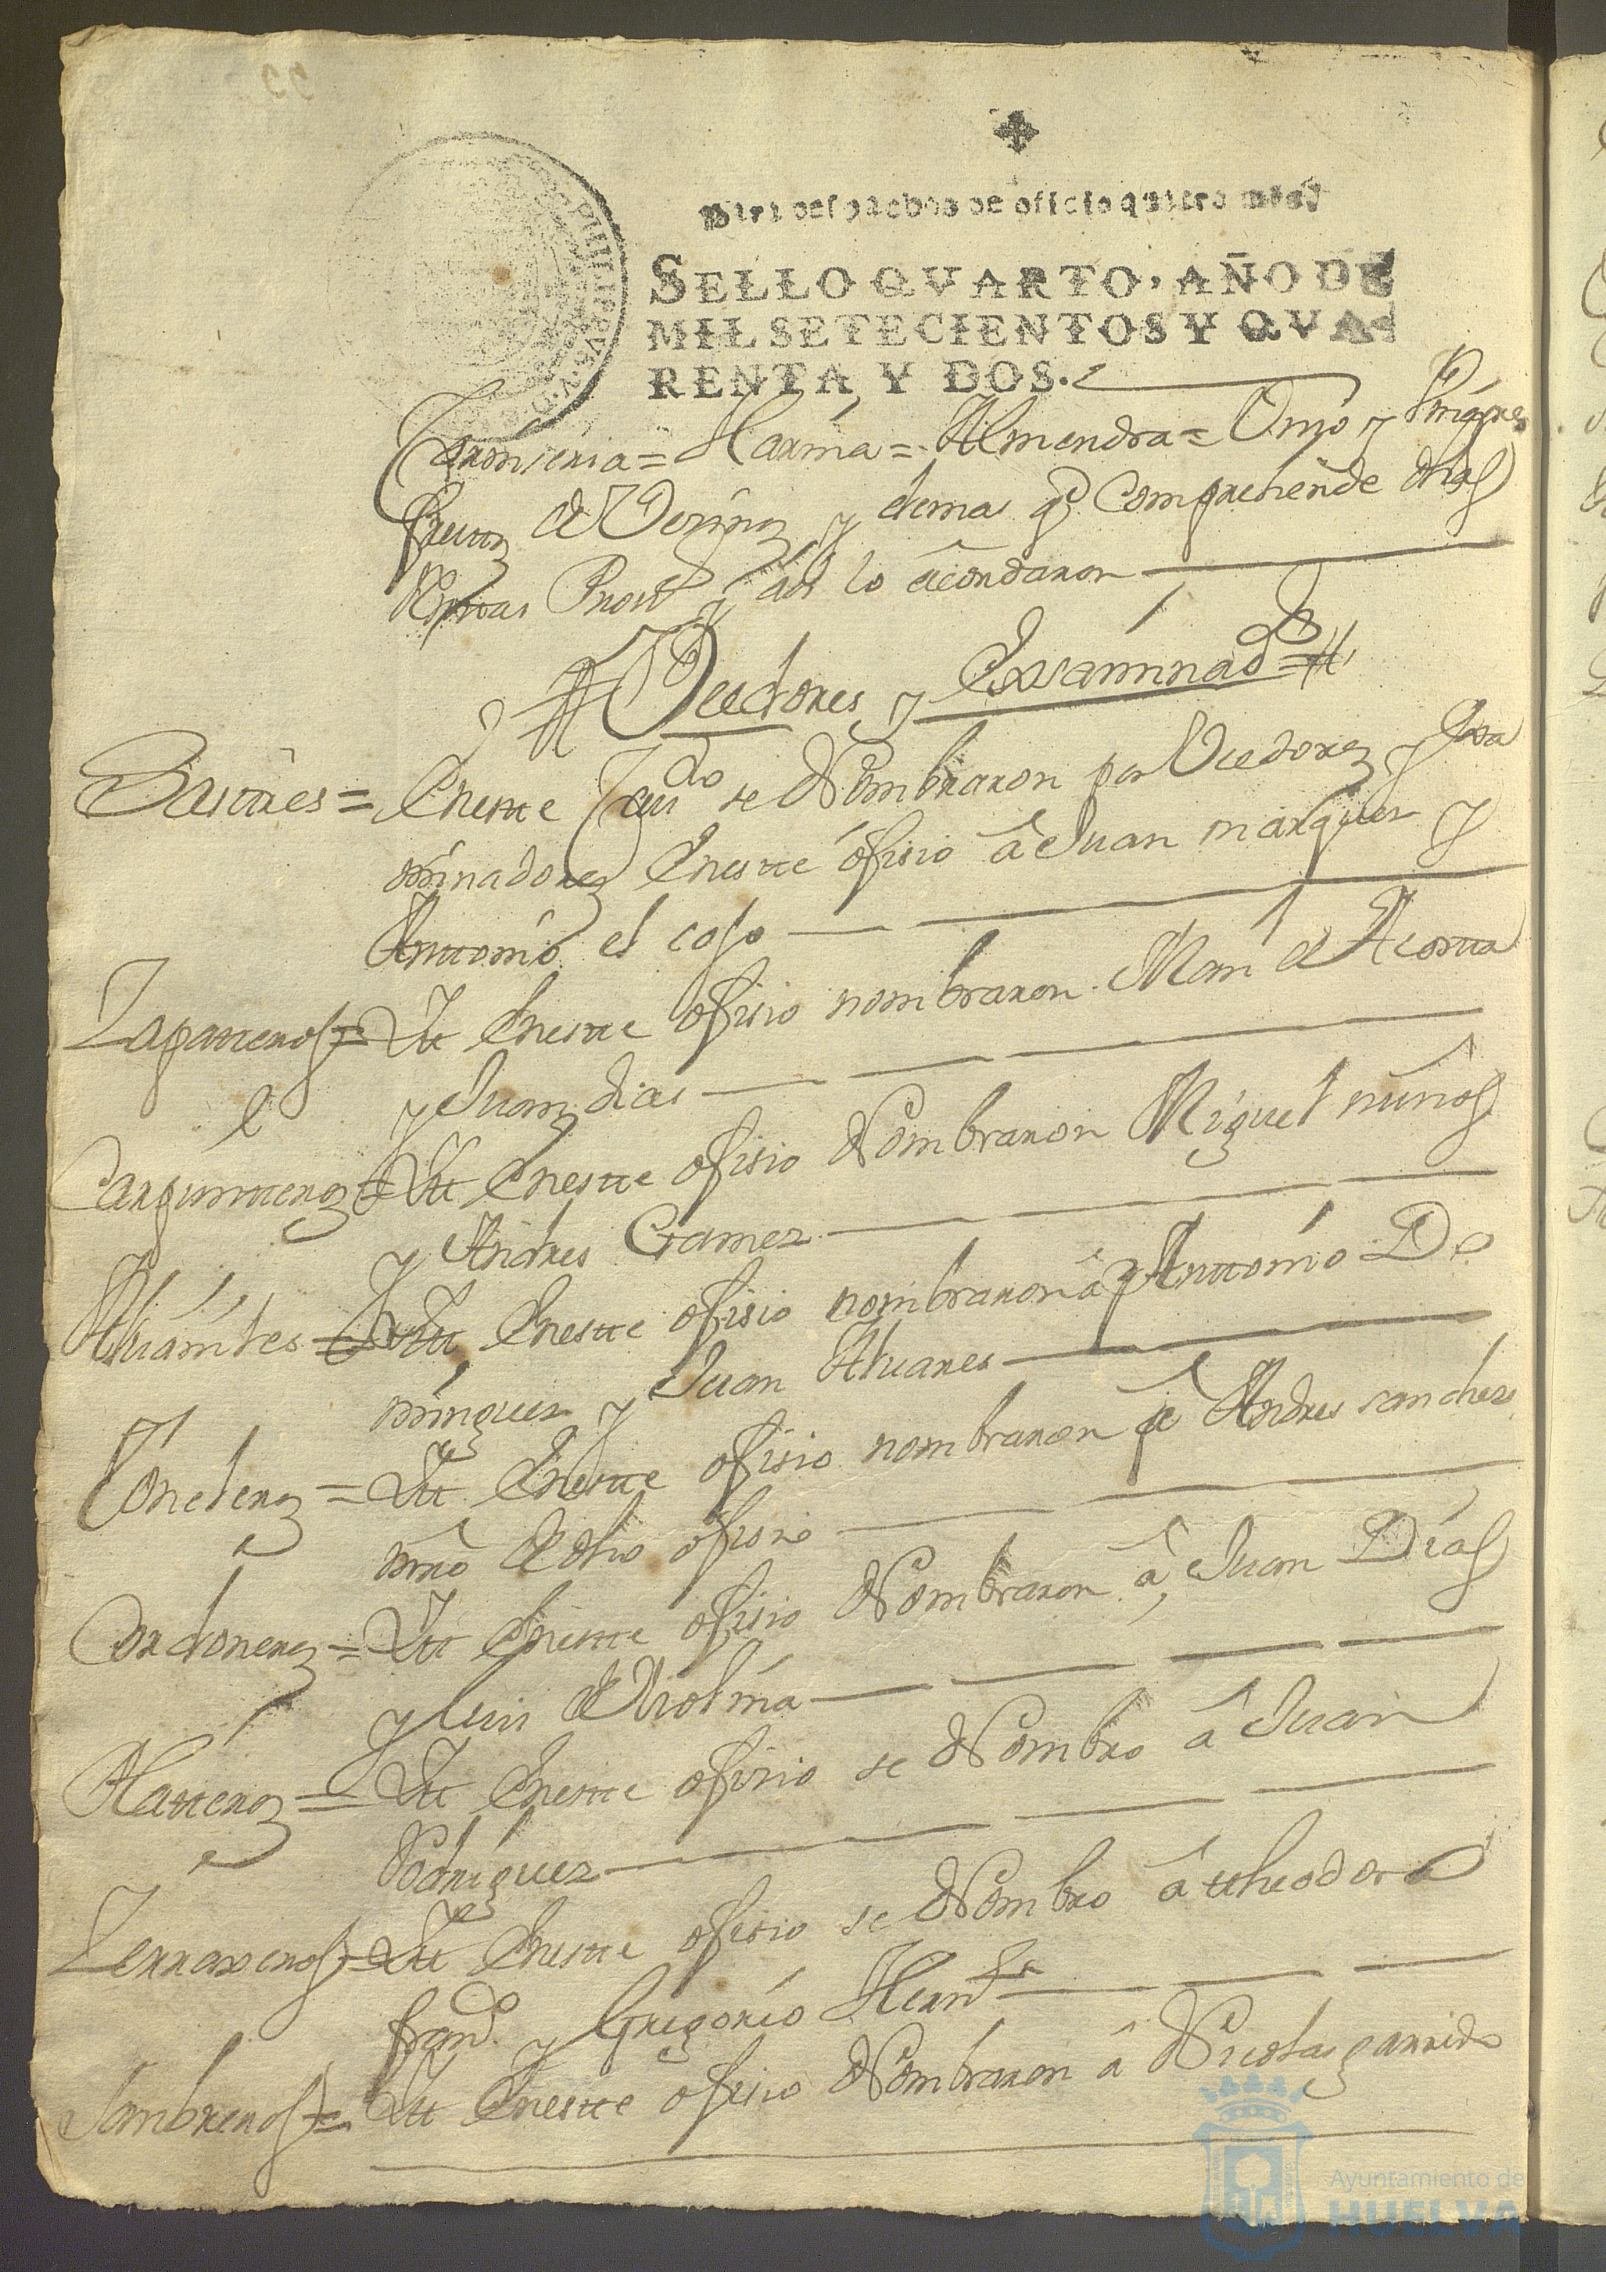 Para despachos de oficio quatro mrs.
SELLO QVARTO, AÑO DE
MIL SETECIENTOS Y QVA
RENTA Y DOS.
Carniseria = Harina = Almendra =
y demas q̃ Comprehende dhas
Rentas Prov.s y asi lo acordaron
Veedores y Exsaminad.s
Sastres = Eneste Caudo se Nombraron por Veedores y Exsa
minadores Eneste ofisio â Juan marques y
Anttonio el coso
Zapatteros = Itt Eneste ofisio nombraron Man l de Acostta
y Juan dias
Carpintteros = Itt Eneste ofisio Nombraron Miguel nuños
y Andres Gomes
Alvañiles = Itt Eneste ofisio nombraron â Anttonio Do
minguez y Juan Alvares
Toneleros = Itt Eneste ofisio nombraron â Andres sanches
mro de dho ofisio
Cordoneros = Itt Eneste ofisio Nombraron â Juan Dias
y Luis de Molina
Platteros = Itt Eneste ofisio se Nombro â Juan
Rodriguez
Zerraxeros = Itt Eneste ofisio se Nombro â ttheodoro
franco y Gregorio Hernz
Sombreros = Itt Eneste ofisio Nombraron â Nicolas garrido
Ayuntamiento de
HUELVA